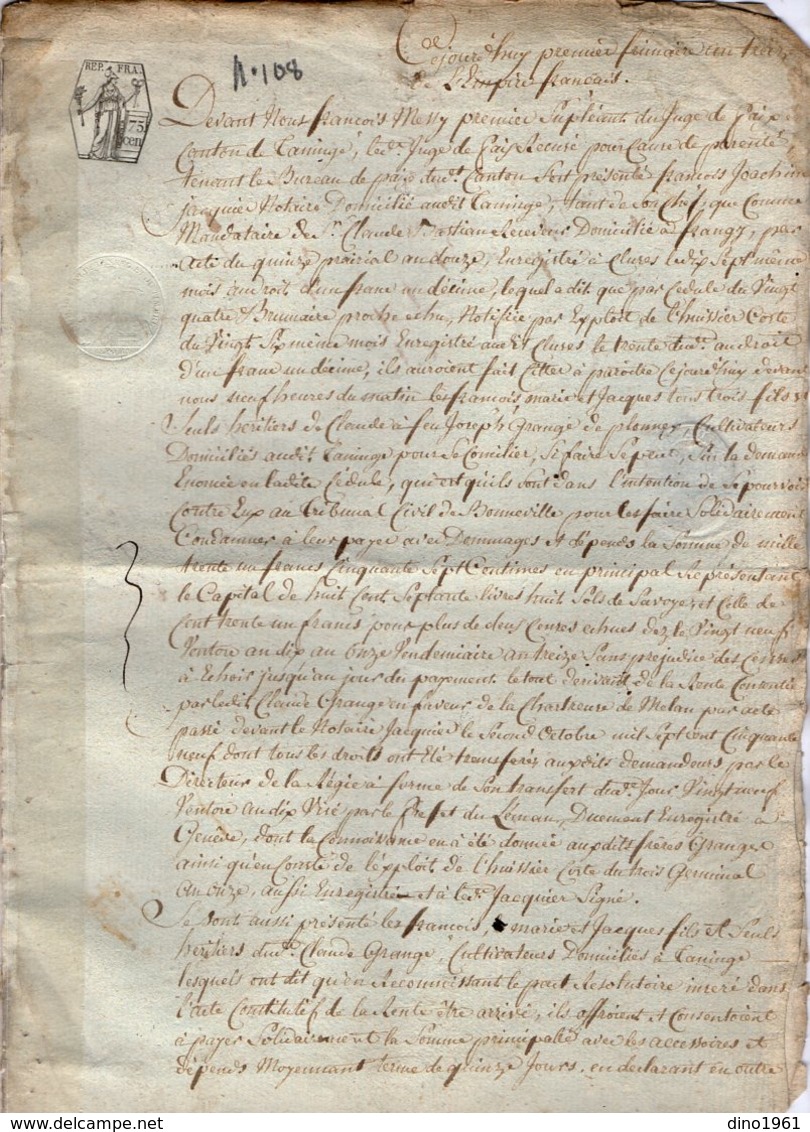 n. 108
REP. FRA.
75
cen
Cejourd'huy premier frimaire an treize
de L'Empire francais.
Devant Nous francois Messy premier Supléant du Juge de Paix
Canton de Taninge, led.t Juge de Paix Recusé pour Cause de parenté,
tenant le Bureau de paix dud.t Canton S'est présenté francois Joachim
jacquier Notaire Domicilié audit Taninge, tant de son chef, que Comme
Mandataire de S.r Claude Bastian Receveur Domicilié à frangy, par
acte du quinze prairial an douze, Enregistré à Cluses le dix Sept même
mois au droit d'un franc un décime, lequel a dit que par Cedule du Vingt
quatre Brumaire proche echu, Notifiée par Exploit de l'huissier Corte
du Vingt Six même mois Enregistré audit Cluses le trente dud.t au droit
d'un franc un décime, ils auroient fait Citter à paroitre Cejourd'huy devant
nous neuf heures du matin les francois marie et Jacques tous trois fils et
Seuls héritiers de Claude à feu Joseph Grange de plonney Cultivateurs
Domiciliés audit Taninge pour se Concilier, Si faire Se peut, Sur la demande
Enoncée en ladite Cédule, qui est qu'ils sont dans l'intention de se pourvoir
Contre Eux au Tribunal Civil de Bonneville pour les faire Solidairement
Condamner à leur payer avec Dommages et dépends la Somme de mille
trente un francs Cinquante Sept Centimes en principal Représentant
le Capital de huit Cent Septante livres huit Sols de Savoye, et Celle de
Cent trente un francs pour plus de deux Censes echues dez le Vingt neuf
Ventose an dix au Onze Vendemiaire an treize Sans prejudice des Censes
à Echoir jusqu'au jour du payement le tout derivant de la Rente Consentie
par ledit Claude Grange en faveur de la Chartreuse de Melan par acte
passé devant le Notaire Jacquier le Second Octobre mil Sept cent Cinquante
neuf dont tous les droits ont été transferés auxdits demandeurs par le
Directeur de la Régie à forme de Son transfert dud.t Jour Vingt neuf
Ventose an dix Visé par le Prefet du Léman, Duement Enregistré à
Genève, dont la Connoissance en a été donnée auxdits frères Grange
ainsi qu'en Conste de l'exploit de l'huissier Corte du trois Germinal
an Onze, aussi Enregistré et à led.t Jacquier Signé.
Se sont aussi présenté les francois, marie et Jacques fils et Seuls
heritiers dud.t Claude Grange, Cultivateurs Domiciliés à Taninge
lesquels ont dit qu'en Reconnoissant le pact Resolutoire inseré dans
l'acte Constitutif de la Rente être arrivé, ils offroient et Consentoient
à payer Solidairement la Somme principalle avec les accessoires et
dépends Moyennant terme de quinze Jours, en declarant en outre
dino1961